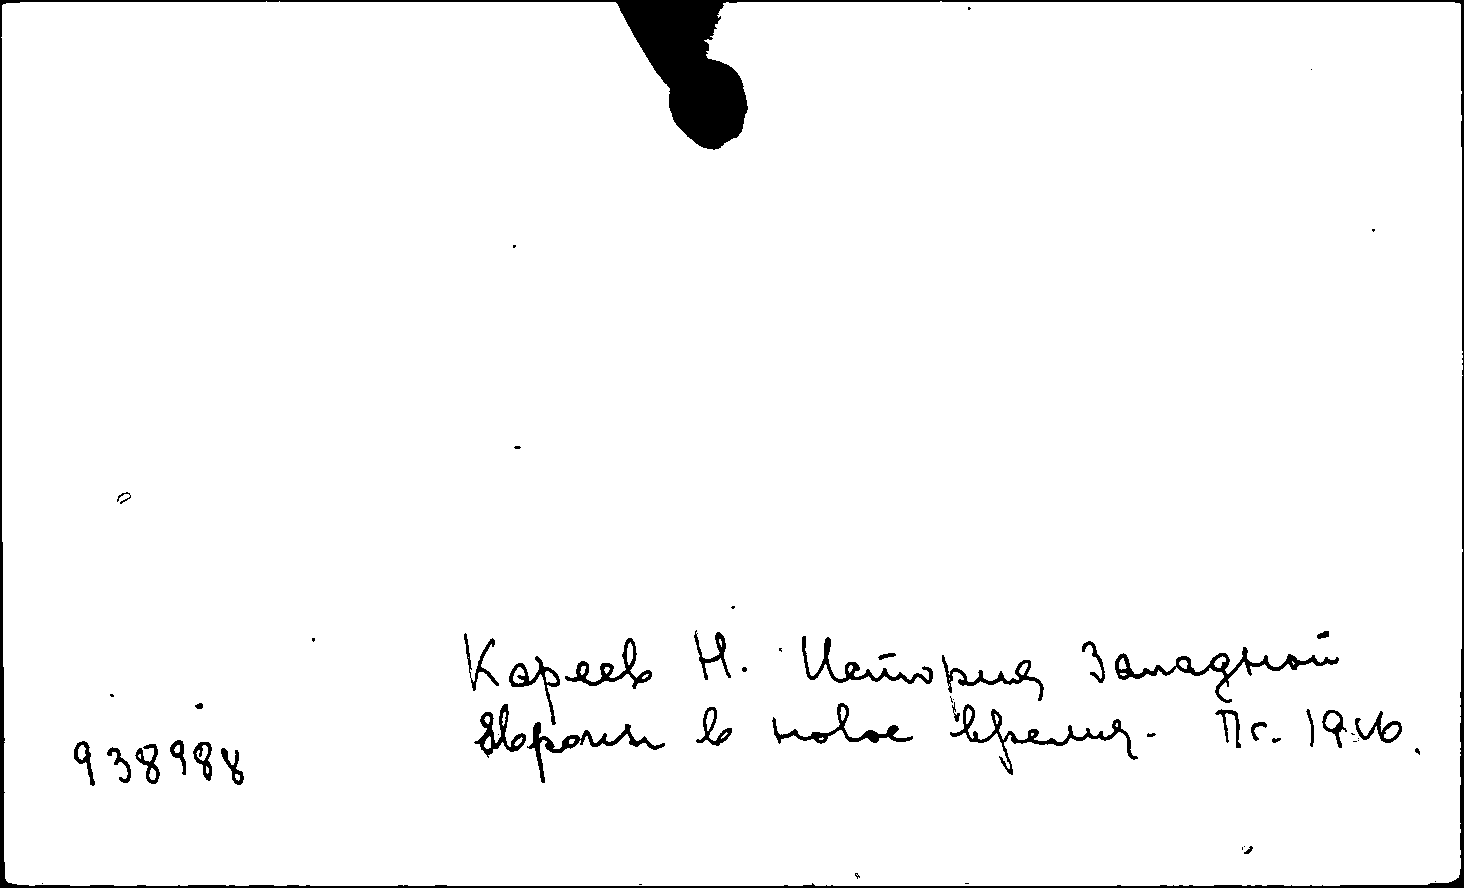 Кареев Н. История Западной
938988 Европы в новое время. Пг. 1916.